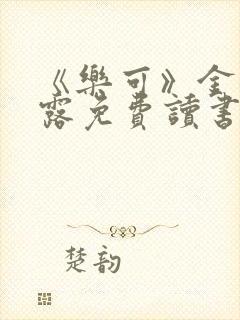 《樂可》金
露免費讀書
楚韵